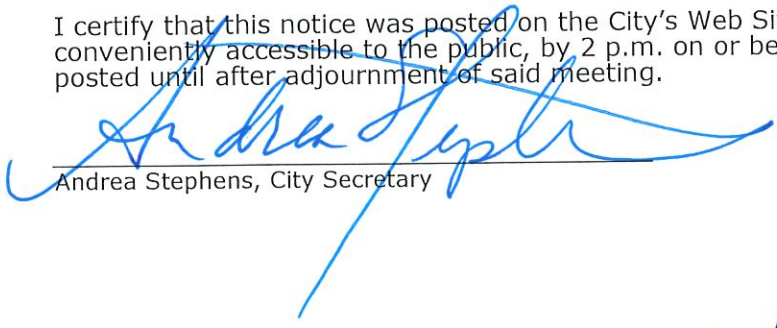 I certify that this notice was posted on the City's Web Si
conveniently accessible to the public, by 2 p.m. on or be
posted until after adjournment of said meeting.
Andrea Steph
Andrea Stephens, City Secretary